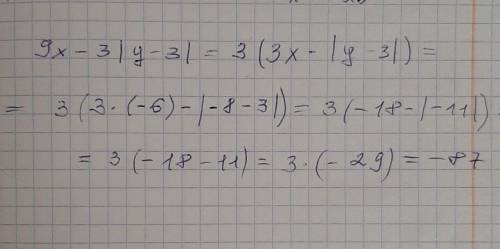 9x - 3|y-3| = 3(3x - |y-3|) =
= 3(3·(-6) - |-8-3|) = 3(-18-|-11|) =
= 3(-18-11) = 3·(-29) = -87